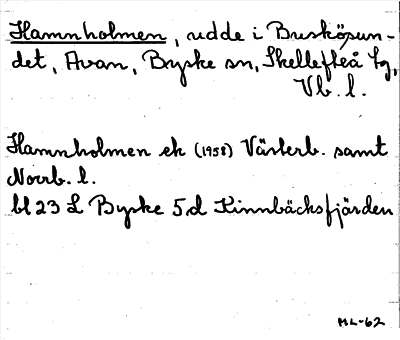 Hamnholmen, udde i Buskössun-
det, Avan, Byske sn, Skellefteå tg,
Vb. l.
Hamnholmen ek (1958) Västerb. samt
Norrb. l.
bl 23 L Byske 5d Kinnbäcksfjärden
ML-62